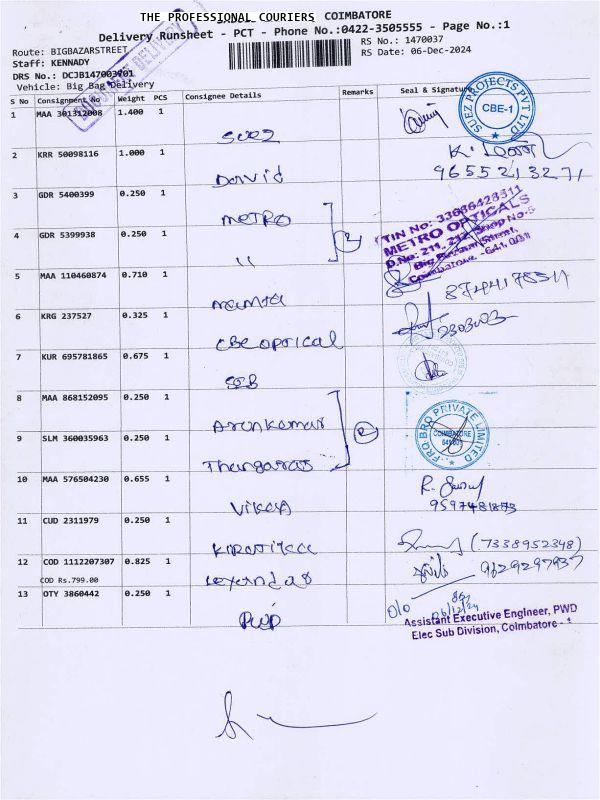 THE PROFESSIONAL COURIERS COIMBATORE
Delivery Runsheet - PCT - Phone No.:0422-3505555 - Page No.:1
Route: BIGBAZARSTREET
RS No.: 1470037
Staff: KENNADY
RS Date: 06-Dec-2024
DRS No.: DCJB147003701
Vehicle: Big Bag Delivery
S No Consignment No Weight PCS Consignee Details Remarks Seal & Signature
1 MAA 301312008 1.400 1 SUEZ
SUEZ PROJECTS PVT LTD
CBE-1
2 KRR 50098116 1.000 1 David
9655213271
3 GDR 5400399 0.250 1 METRO
4 GDR 5399938 0.250 1 "
TIN No: 33686428311
METRO OPTICALS
D.No: 211, 212, Shop No-5
Big Bazaar Street,
Coimbatore -641 001
5 MAA 110460874 0.710 1 mamta
6 KRG 237527 0.325 1 CBE optical
7 KUR 695781865 0.675 1
8 MAA 868152095 0.250 1 Arunkumar
9 SLM 360035963 0.250 1 Thangaraj
FRO BRO PRIVATE LIMITED
COIMBATORE
641 001
10 MAA 576504230 0.655 1 Vikas
11 CUD 2311979 0.250 1
(7338952348)
12 COD 1112207307 0.825 1
COD Rs.799.00
9629297937
13 OTY 3860442 0.250 1 PWD
O/o
06/12/24
Assistant Executive Engineer, PWD
Elec Sub Division, Coimbatore - 1